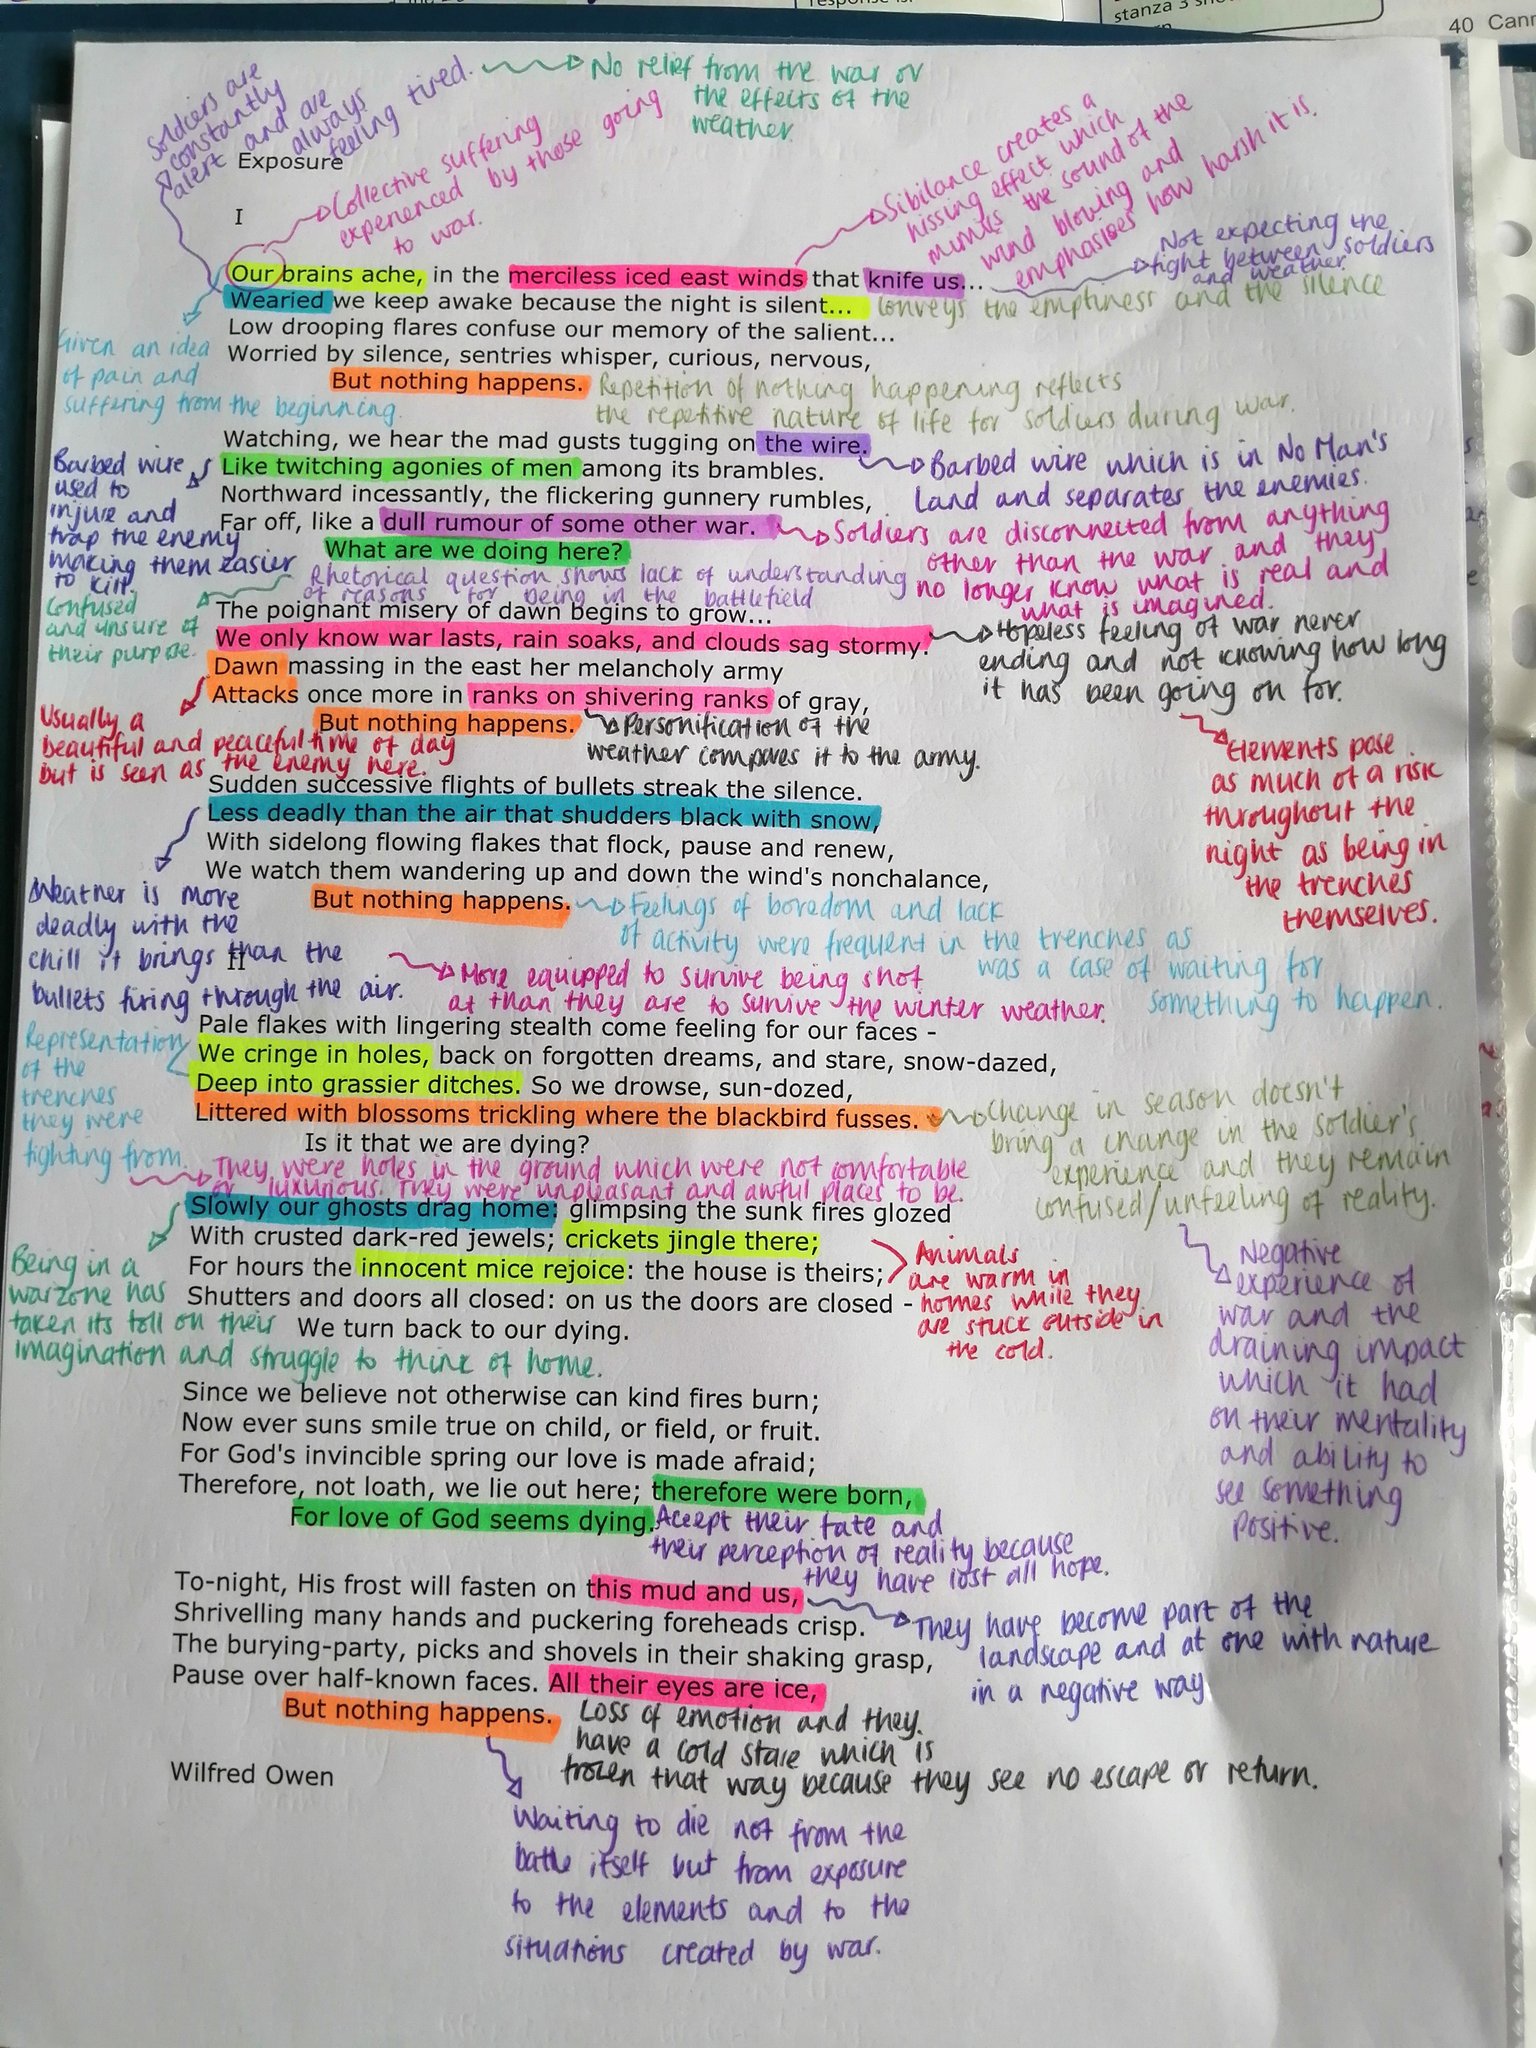 response is:
stanza 3 sho
40 Cann
Soldiers are
constantly
alert and are
always
feeling tired.
No relief from the war or
the effects of the
weather
Exposure
Collective suffering
experienced by those going
to war.
Sibilance creates a
hissing effect which
mimics the sound of the
wind blowing and
emphasises how harsh it is.
I
Not expecting the
fight between soldiers
and weather.
Our brains ache, in the merciless iced east winds that knife us...
Wearied we keep awake because the night is silent...
Conveys the emptiness and the silence
Low drooping flares confuse our memory of the salient...
Worried by silence, sentries whisper, curious, nervous,
But nothing happens.
Given an idea
of pain and
suffering from the beginning.
Repetition of nothing happening reflects
the repetitive nature of life for soldiers during war.
Watching, we hear the mad gusts tugging on the wire.
Like twitching agonies of men among its brambles.
Northward incessantly, the flickering gunnery rumbles,
Far off, like a dull rumour of some other war.
What are we doing here?
Barbed wire
used to
injure and
trap the enemy
making them easier
to kill.
Barbed wire which is in No Man's
Land and separates the enemies.
Soldiers are disconnected from anything
other than the war and they
no longer know what is real and
what is imagined.
Rhetorical question shows lack of understanding
of reasons for being in the battlefield
Confused
and unsure of
their purpose.
The poignant misery of dawn begins to grow...
We only know war lasts, rain soaks, and clouds sag stormy.
Dawn massing in the east her melancholy army
Attacks once more in ranks on shivering ranks of gray,
But nothing happens.
Hopeless feeling of war never
ending and not knowing how long
it has been going on for.
Usually a
beautiful and peaceful time of day
but is seen as the enemy here.
Personification of the
weather compares it to the army.
Elements pose
as much of a risk
throughout the
night as being in
the trenches
themselves.
Sudden successive flights of bullets streak the silence.
Less deadly than the air that shudders black with snow,
With sidelong flowing flakes that flock, pause and renew,
We watch them wandering up and down the wind's nonchalance,
But nothing happens.
Weather is more
deadly with the
chill it brings than the
bullets firing through the air.
Feelings of boredom and lack
of activity were frequent in the trenches as
was a case of waiting for
something to happen.
II
More equipped to survive being shot
at than they are to survive the winter weather.
Pale flakes with lingering stealth come feeling for our faces -
We cringe in holes, back on forgotten dreams, and stare, snow-dazed,
Deep into grassier ditches. So we drowse, sun-dozed,
Littered with blossoms trickling where the blackbird fusses.
Is it that we are dying?
Representation
of the
trenches
they were
fighting from.
They were holes in the ground which were not comfortable
or luxurious. They were unpleasant and awful places to be.
Change in season doesn't
bring a change in the soldier's
experience and they remain
confused/unfeeling of reality.
Slowly our ghosts drag home: glimpsing the sunk fires glozed
With crusted dark-red jewels; crickets jingle there;
For hours the innocent mice rejoice: the house is theirs;
Shutters and doors all closed: on us the doors are closed -
We turn back to our dying.
Being in a
warzone has
taken its toll on their
imagination and struggle to think of home.
Animals
are warm in
homes while they
are stuck outside in
the cold.
Negative
experience of
war and the
draining impact
which it had
on their mentality
and ability to
see something
positive.
Since we believe not otherwise can kind fires burn;
Now ever suns smile true on child, or field, or fruit.
For God's invincible spring our love is made afraid;
Therefore, not loath, we lie out here; therefore were born,
For love of God seems dying.
Accept their fate and
their perception of reality because
they have lost all hope.
To-night, His frost will fasten on this mud and us,
Shrivelling many hands and puckering foreheads crisp.
The burying-party, picks and shovels in their shaking grasp,
Pause over half-known faces. All their eyes are ice,
But nothing happens.
They have become part of the
landscape and at one with nature
in a negative way
Loss of emotion and they
have a cold stare which is
frozen that way because they see no escape or return.
Wilfred Owen
Waiting to die not from the
battle itself but from exposure
to the elements and to the
situations created by war.